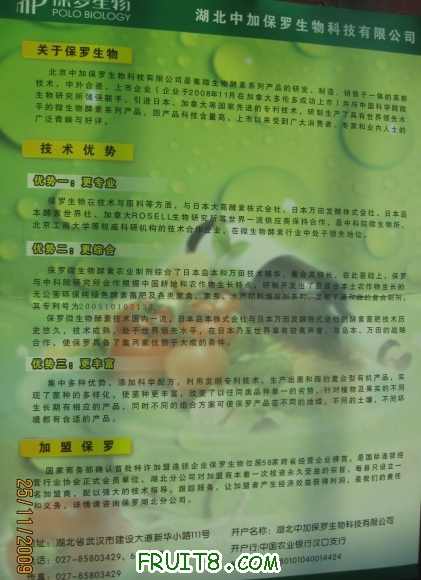 保罗生物
POLO BIOLOGY
湖北中加保罗生物科技有限公司
关于保罗生物
北京中加保罗生物科技有限公司是集微生物酵素系列产品的研发、制造、销售于一体的高新
技术、中外合资、上市企业（企业于2008年11月在加拿大多伦多成功上市）并与中国科学院微
生物研究所强强联手，引进日本、加拿大等国家先进的专利技术，研制生产了具有世界领先水
平的微生物酵素系列产品，因产品科技含量高、上市以来受到广大消费者、专家和业内人士的
广泛青睐与好评。
技术优势
优势一：更专业
保罗生物在技术与原料等方面，与日本大高酵素株式会社、日本万田发酵株式会社、日本岛
本酵素世界社、加拿大ROSELL生物研究所等世界一流供应商保持合作，是中科院微生物所、
北京工商大学等权威科研机构的技术合作企业，在微生物酵素行业中处于领先地位。
优势二：更综合
保罗微生物酵素农业制剂综合了日本岛本和万田技术精华，集合其特长，在此基础上，保罗
与中科院研究所合作根据中国耕地和农作物生长特点，研制开发出了
无公害环保纯绿色酵素菌肥及各类
其专利号为
保罗微生物酵素技术国内一流，日本岛本株式会社与日本万田发酵株式会社的酵素菌肥技术历
史悠久，技术成熟，处于世界领先水平，在日本乃至世界素有较高声誉，与岛本、万田的战略
合作，使保罗具备了集两家优势于大成的条件。
优势三：更丰富
集中多种优势，添加科学配方，利用发明专利技术，生产出菌和酶的复合型有机产品，实
现了菌种的多样化，使菌种更丰富，改变了以往同类品种单一的劣势，针对植物及果实的不同
生长期有相应的产品，同时不同的组合方案可使保罗产品在不同的地域、不同的土壤、不同环
境都有合适的产品。
加盟保罗
国家商务部确认首批特许加盟连锁企业保罗生物位居58家跨省经营企业榜首，是国际连锁经
营行业协会正式会员单位。湖北分公司对加盟商本着一次检验永久受益的宗旨，每县只设立一
名加盟商，配以强大的技术指导，跟踪服务，让加盟者产生经济效益获得利润，是我们的责任
和义务。详情请咨询保罗湖北分公司。
地址：湖北省武汉市建设大道新华小路111号
开户名称：湖北中加保罗生物科技有限公司
电话：027-85803429、
开户行:中国农业银行汉口支行
传真：027-85803429
25/11/2009
FRUIT8.COM